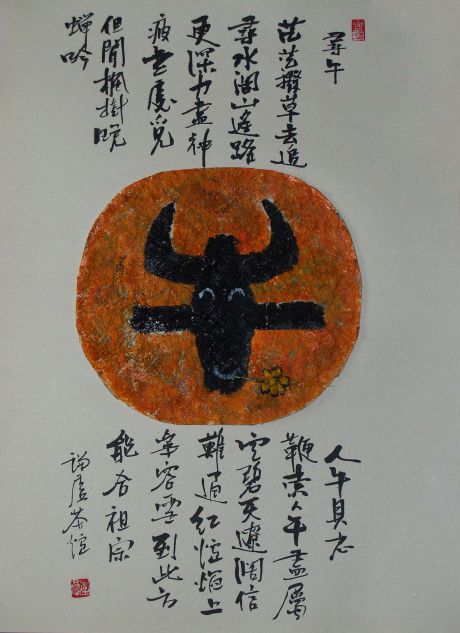 尋牛
茫茫撥草去追
尋水闊山遙路
更深力盡神
疲無處覓
但聞楓樹晚
蟬吟
人牛具忘
鞭索人牛盡屬
空碧天遼闊信
難通紅爐焰上
爭容雪到此方
能合祖宗